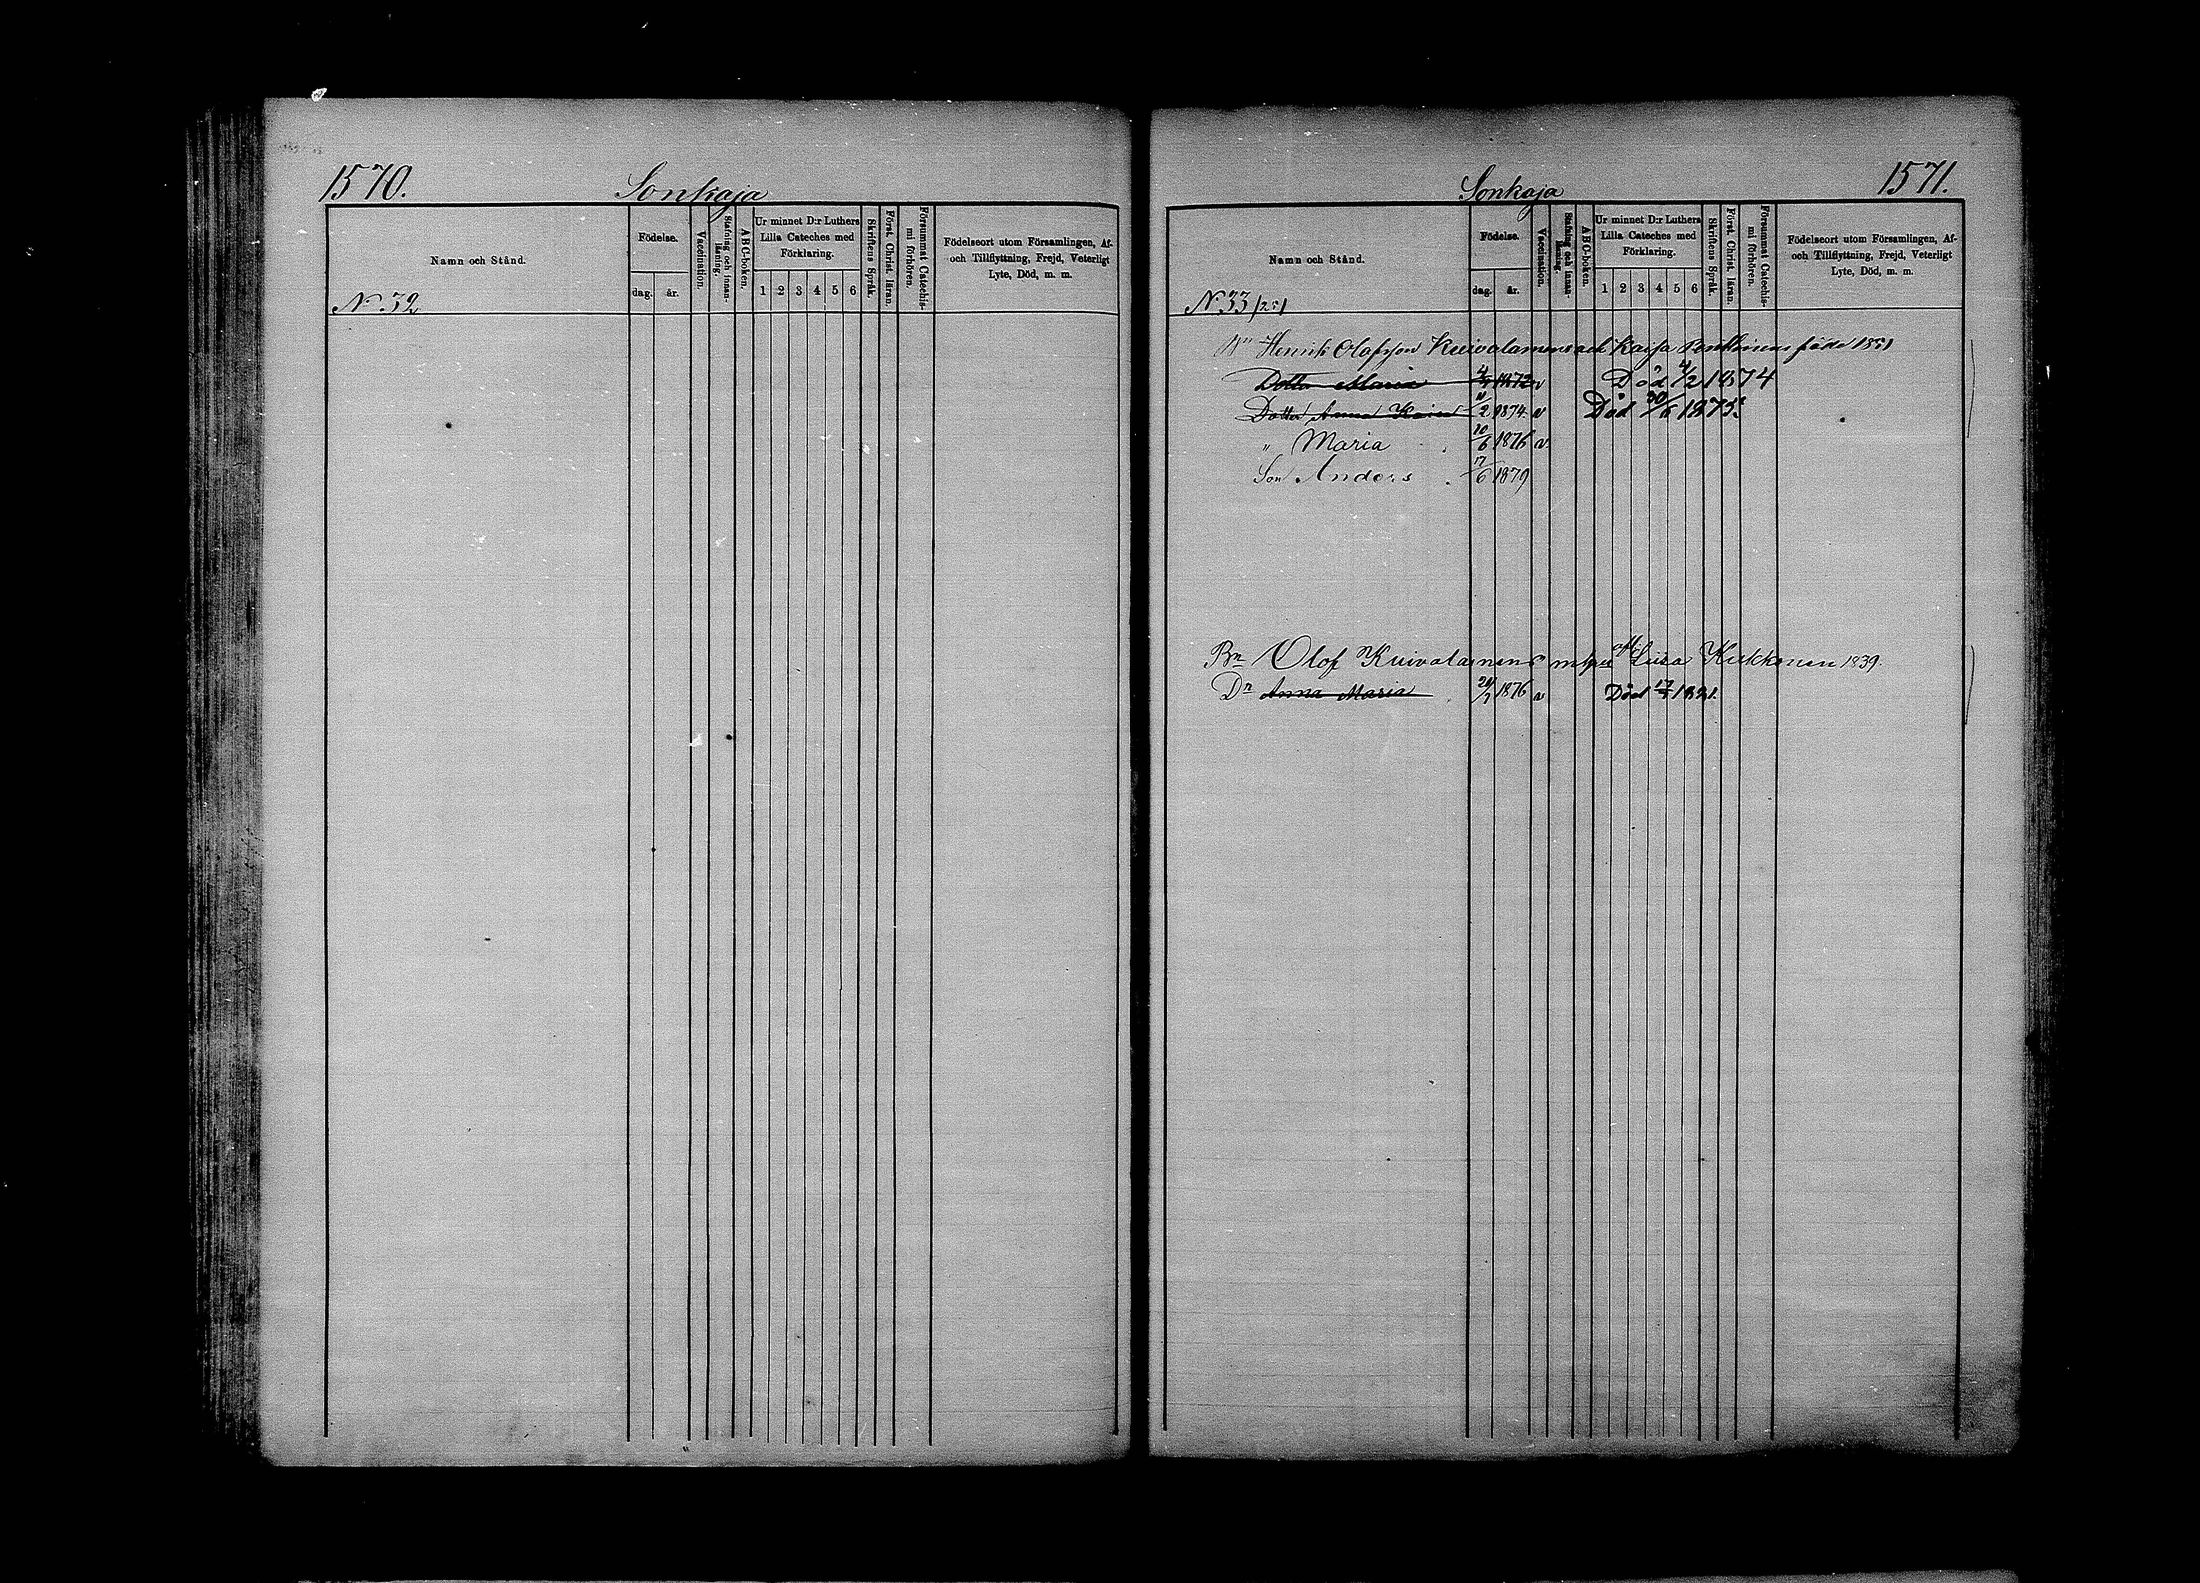 1570.
Sonkaja
Namn och Stånd.
Födelse.
dag. år.
Vaccination.
Stafning och innan-läsning.
ABC-boken.
Ur minnet D:r Luthers
Lilla Cateches med
Förklaring.
1 2 3 4 5 6
Skriftens Språk.
Först. Christ. läran.
Försummat Catechis-mi förhören.
Födelseort utom Församlingen, Af-
och Tillflyttning, Frejd, Veterligt
Lyte, Död, m. m.
N 32
1571.
Sonkaja
Namn och Stånd.
Födelse.
dag. år.
Vaccination.
Stafning och innan-läsning.
ABC-boken.
Ur minnet D:r Luthers
Lilla Cateches med
Förklaring.
1 2 3 4 5 6
Skriftens Språk.
Först. Christ. läran.
Försummat Catechis-mi förhören.
Födelseort utom Församlingen, Af-
och Tillflyttning, Frejd, Veterligt
Lyte, Död, m. m.
N 33
Henrik Olofsson Kuivalainens och Kaisa född 1851
Dotter Maria 1872 v Död 4/2 1874
Dotter Anna Kaisa 2 1874 v Död 30/6 1875.
" Maria 10/6 1876 v
Son Anders 17/6 1879
Bn Olof Kuivalainens m hu Liisa Kukkonen 1839.
Dr Anna Maria 1876 v Död 1881.